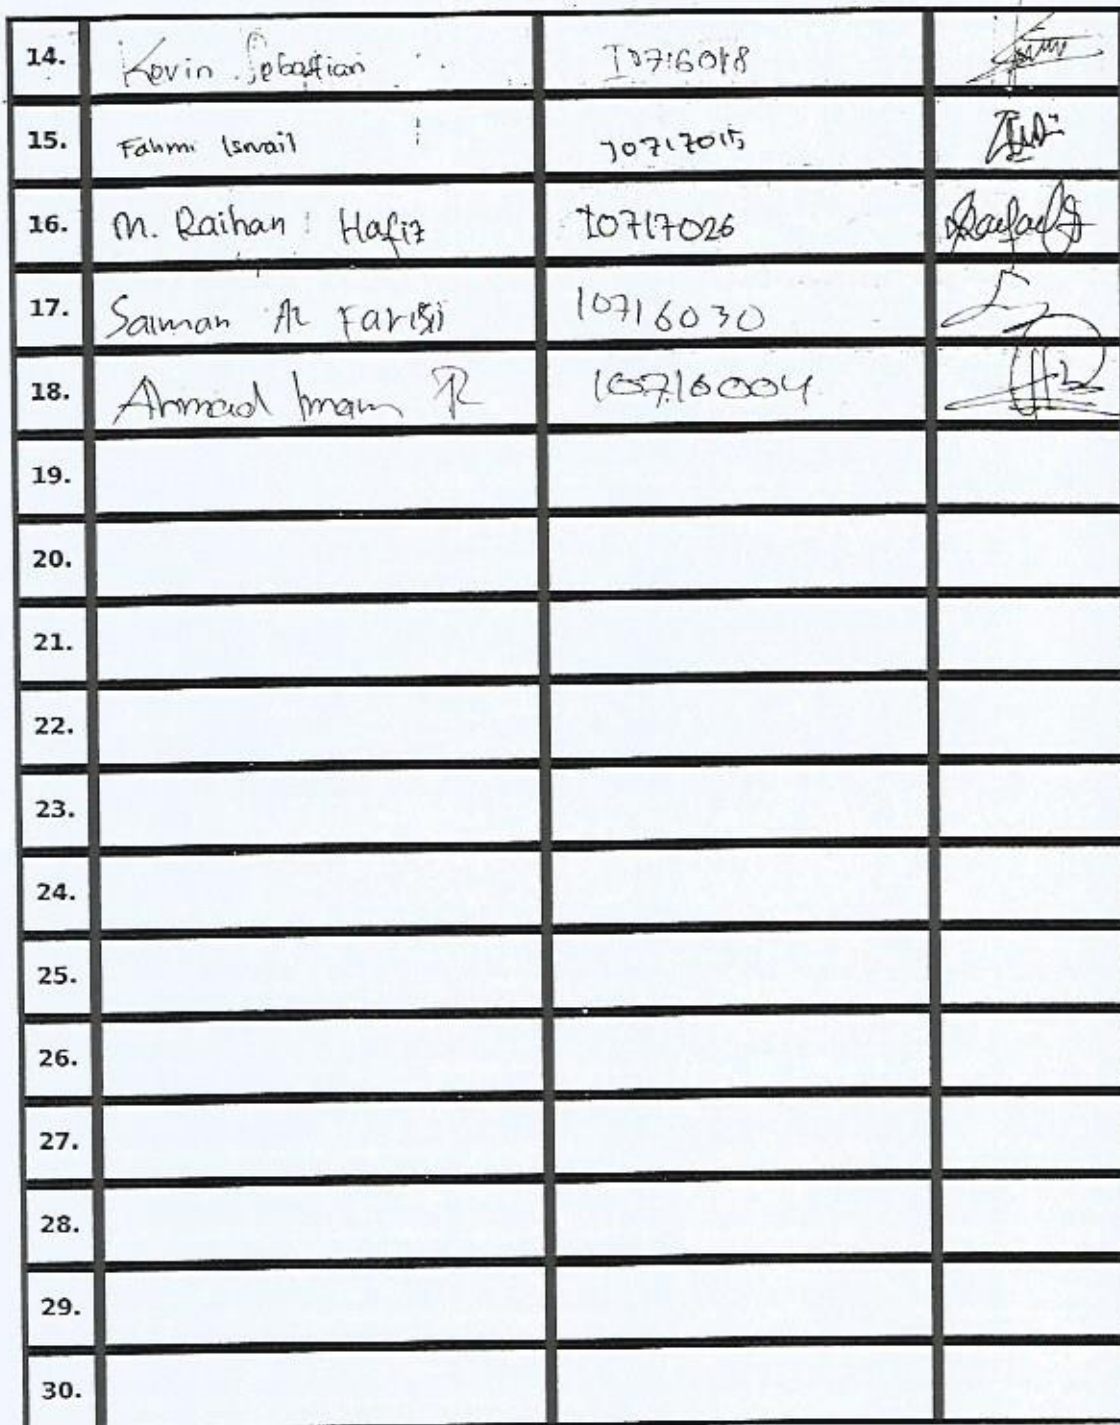 14. Kevin Sebastian I0716018
15. Fahmi Ismail I0717015
16. M. Raihan Hafiz I0717026
17. Salman Al Farisi I0716030
18. Ahmad Imam R I0716004
19.
20.
21.
22.
23.
24.
25.
26.
27.
28.
29.
30.